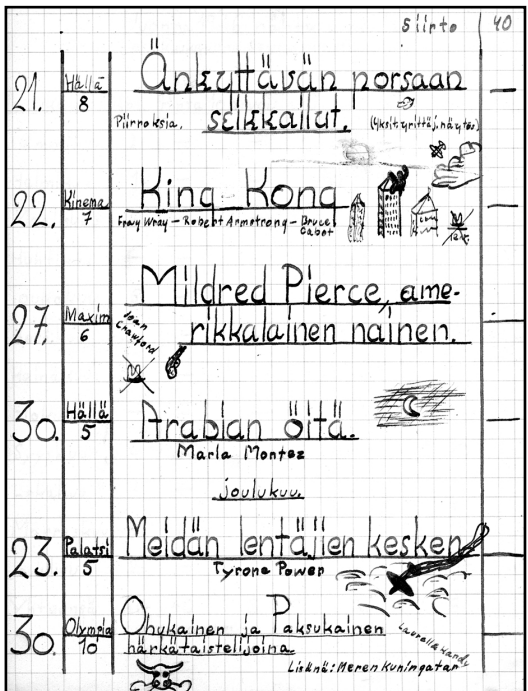 siirto 40
21. Hällä 8 Änkyttävän porsaan
Piirroksia. seikkailut. (Yksit. yrittäj. näytös)
22. Kinema 7 King Kong
Fray Wray – Robert Armstrong – Bruce Cabot
27. Maxim 6 Mildred Pierce, ame-
rikkalainen nainen.
Joan Crawford
30. Hällä 5 Arabian öitä.
Maria Montez
joulukuu.
23. Palatsi 5 Meidän lentäjien kesken
Tyrone Power
30. Olympia 10 Ohukainen ja Paksukainen
härkätaistelijoina.
Laurel & Hardy
Lisänä: Meren kuningatar